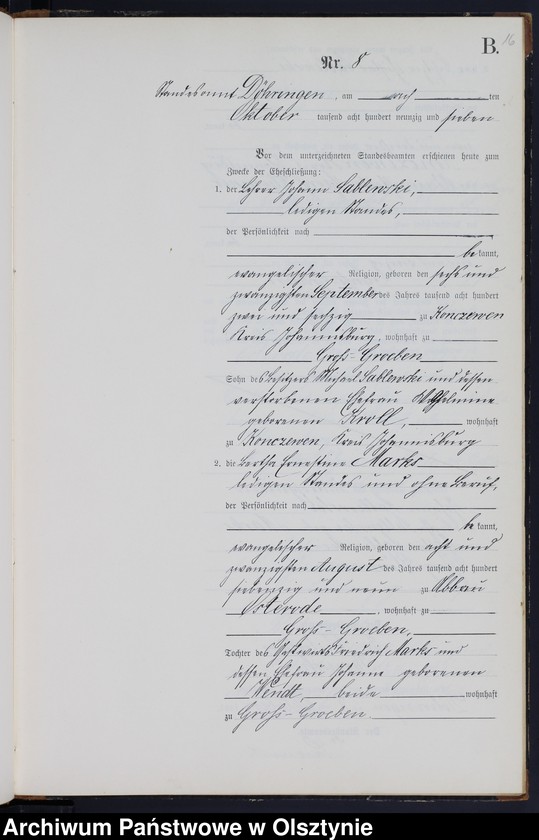 B. 16
Nr. 8
Standesamt Döhringen, am acht ten
Oktober tausend acht hundert neunzig und sieben
Vor dem unterzeichneten Standesbeamten erschienen heute zum
Zwecke der Eheschließung:
1. der Lehrer Johann Sablewski,
ledigen Standes,
der Persönlichkeit nach
bekannt,
evangelischer Religion, geboren den sechs und
zwanzigsten September des Jahres tausend acht hundert
zwei und sechzig zu Konczewen
Kreis Johannisburg, wohnhaft zu
Groß-Groeben
Sohn des Besitzers Michael Sablewski und dessen
verstorbenen Ehefrau Wilhelmine
geborenen Kroll, wohnhaft
zu Konczewen, Kreis Johannisburg
2. die Bertha Ernestine Marks
ledigen Standes und ohne Beruf,
der Persönlichkeit nach
bekannt,
evangelischer Religion, geboren den acht und
zwanzigsten August des Jahres tausend acht hundert
siebenzig und neun zu Abbau
Osterode, wohnhaft zu
Groß-Groeben,
Tochter des Gastwirts Friedrich Marks und
dessen Ehefrau Johanne geborenen
Wendt, beide wohnhaft
zu Groß-Groeben
Archiwum Państwowe w Olsztynie